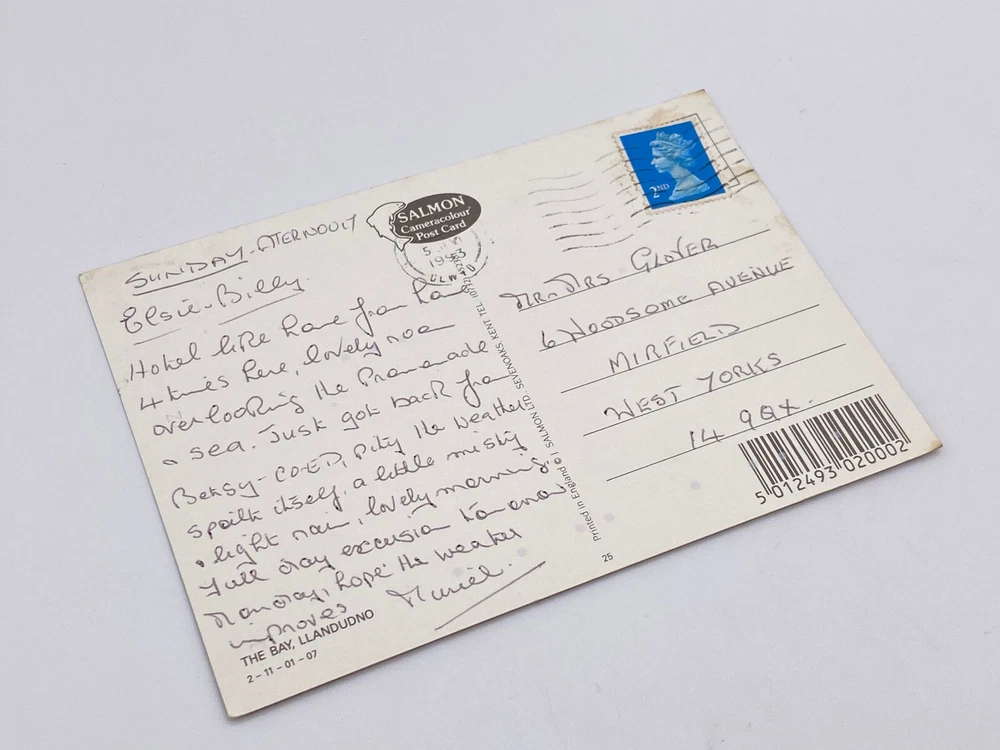 SUNDAY-AFTERNOON
Elsie & Billy
Hotel like have
4 times here, lovely room
overlooking the Promanade
& sea. Just got back from
Betsy-COED, Pity the weather
spoilt itself, a little misty
& light rain, lovely morning.
Full day excursion tomorrow
Monday, hope the weather
improves Muriel.
THE BAY, LLANDUDNO
2-11-01-07
SALMON
Cameracolour
Post Card
Printed in England © J SALMON LTD. SEVENOAKS KENT TEL
25
2ND
MR & MRS GLOVER
6 WOODSOME AVENUE
MIRFIELD
WEST YORKS
14 9QX.
5 012493 020002